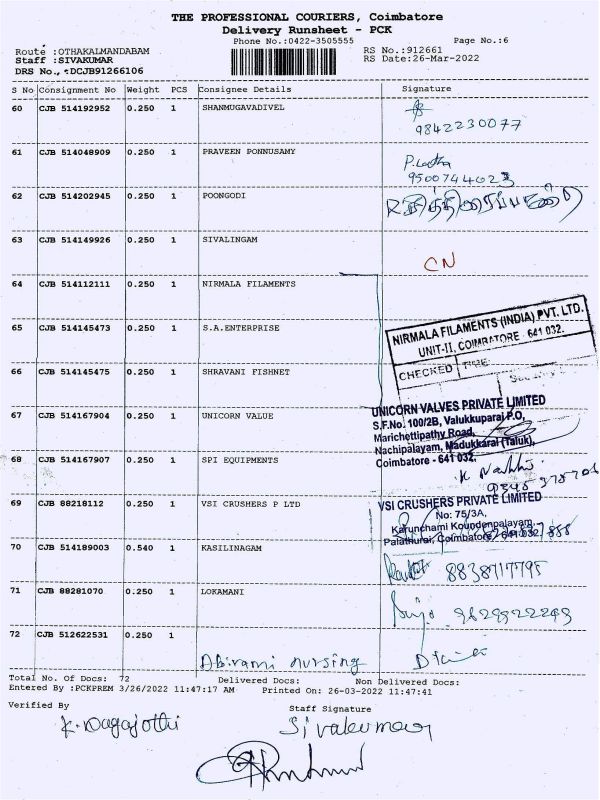 THE PROFESSIONAL COURIERS, Coimbatore
Delivery Runsheet - PCK
Phone No.:0422-3505555 Page No.:6
Route :OTHAKALMANDABAM RS No.:912661
Staff :SIVAKUMAR RS Date:26-Mar-2022
DRS No., :DCJB91266106
S No Consignment No Weight PCS Consignee Details Signature
60 CJB 514192952 0.250 1 SHANMUGAVADIVEL
9842230077
61 CJB 514048909 0.250 1 PRAVEEN PONNUSAMY P.Latha
9500744023
62 CJB 514202945 0.250 1 POONGODI
63 CJB 514149926 0.250 1 SIVALINGAM CN
64 CJB 514112111 0.250 1 NIRMALA FILAMENTS
NIRMALA FILAMENTS (INDIA) PVT. LTD.
UNIT-II, COIMBATORE - 641 032.
CHECKED TIME
65 CJB 514145473 0.250 1 S.A.ENTERPRISE
66 CJB 514145475 0.250 1 SHRAVANI FISHNET
67 CJB 514167904 0.250 1 UNICORN VALUE
UNICORN VALVES PRIVATE LIMITED
S.F.No. 100/2B, Valukkuparai P.O,
Marichettipathy Road,
Nachipalayam, Madukkarai (Taluk),
Coimbatore - 641 032.
68 CJB 514167907 0.250 1 SPI EQUIPMENTS
69 CJB 88218112 0.250 1 VSI CRUSHERS P LTD
VSI CRUSHERS PRIVATE LIMITED
No: 75/3A,
Karunchami Koundenpalayam,
Palathurai, Coimbatore - 641 032
70 CJB 514189003 0.540 1 KASILINAGAM 8838717795
71 CJB 88281070 0.250 1 LOKAMANI 9629922249
72 CJB 512622531 0.250 1
Abirami nursing
Total No. Of Docs: 72 Delivered Docs: Non Delivered Docs:
Entered By :PCKPREM 3/26/2022 11:47:17 AM Printed On: 26-03-2022 11:47:41
Verified By Staff Signature
K. Nagajothi Sivakumar